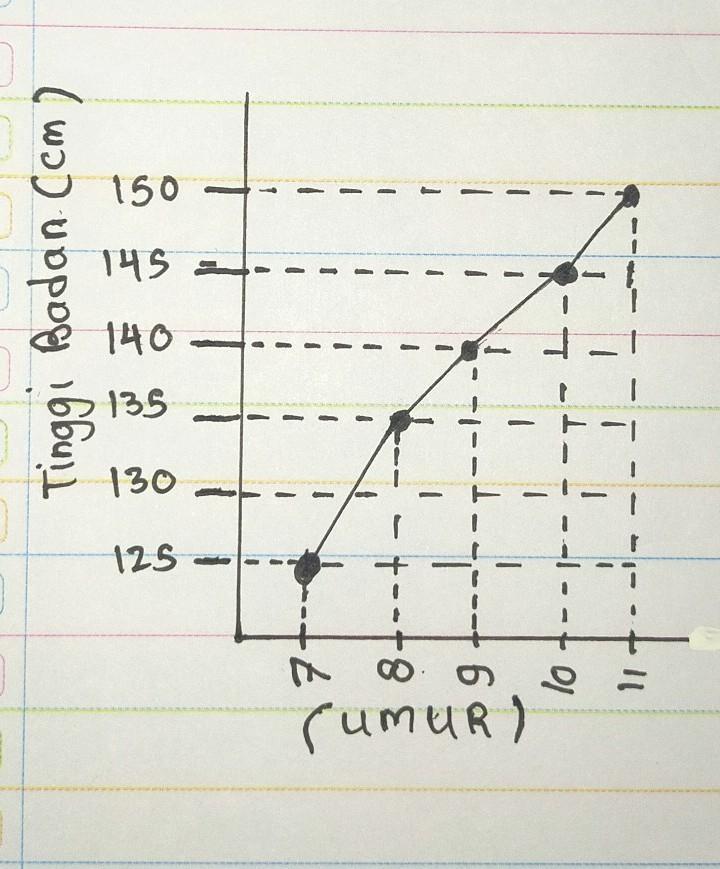 Tinggi Badan (cm)
150
145
140
135
130
125
7 8 9 10 11
(UMUR)